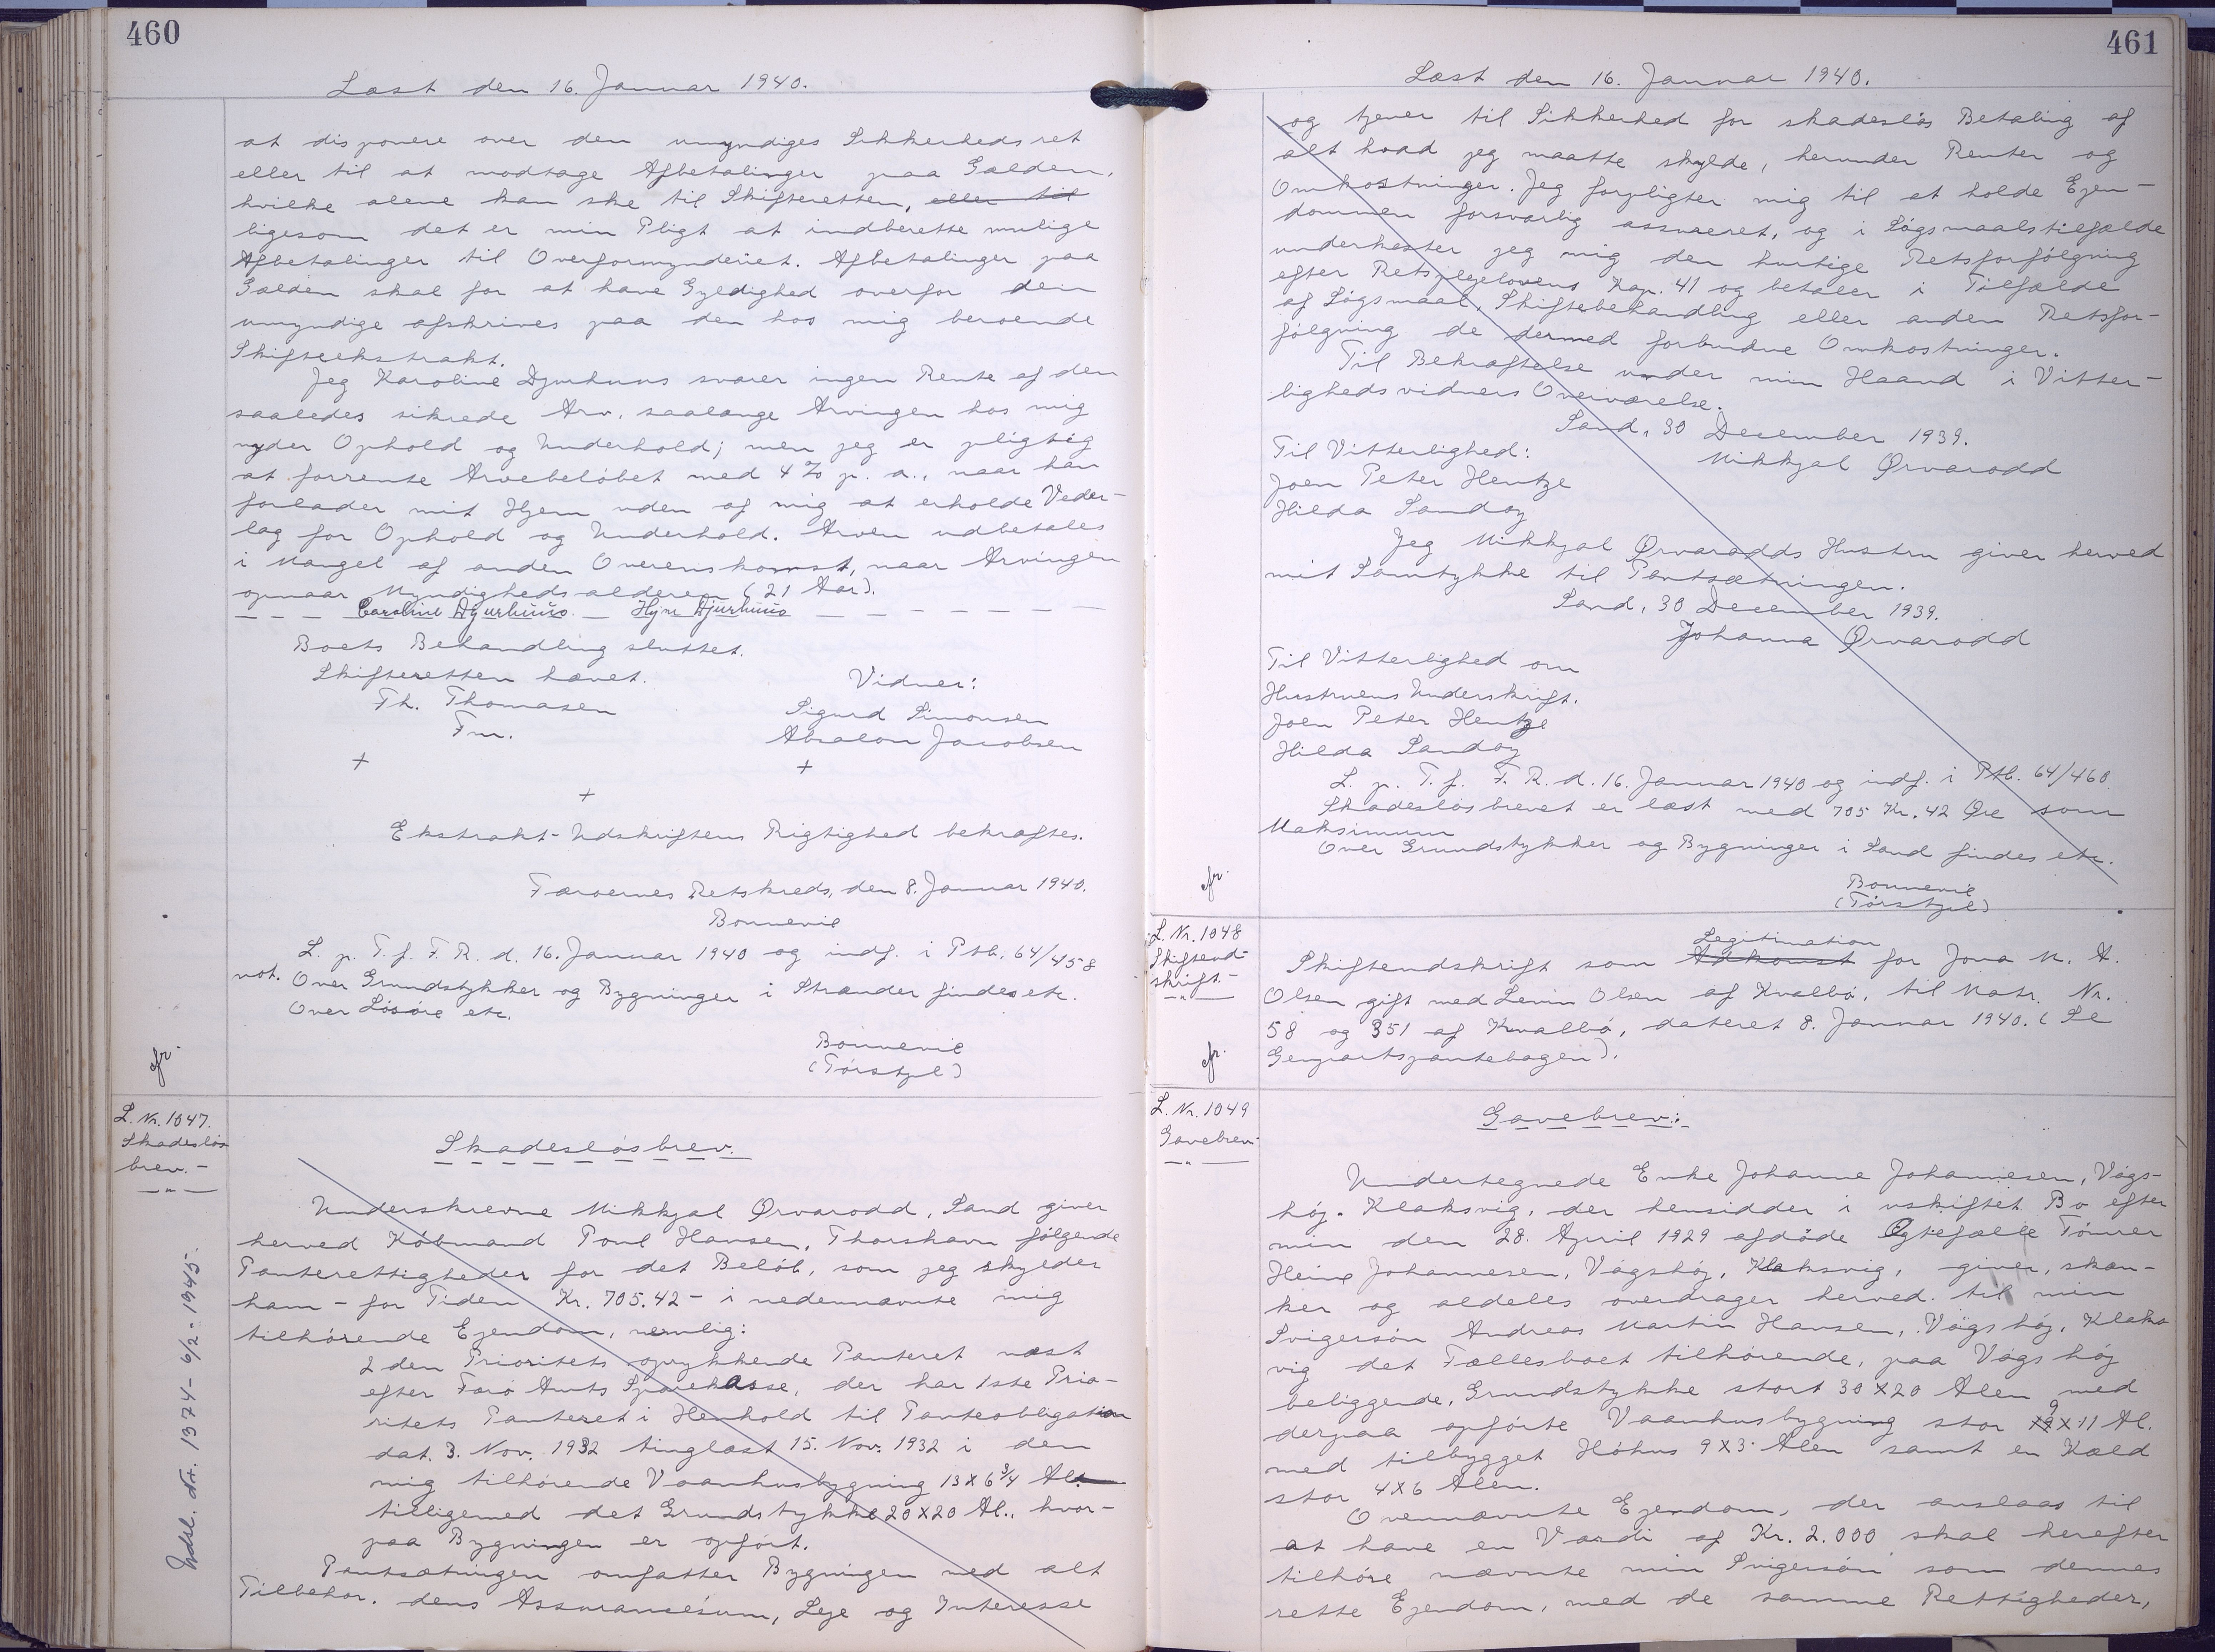 460
Læst den 16. Januar 1940.
at disponere over den umyndiges Sikkerhedsret
eller til at modtage Afbetalinger paa Gælden,
hvilke alene kan ske til Skifteretten, eller til
ligesom det er min Pligt at indberette mulige
Afbetalinger til Overformynderiet. Afbetalinger paa
Gælden skal for at have Gyldighed overfor den
umyndige afskrives paa den hos mig beroende
Skifteekstrakt.
Jeg Karoline Djurhuus svarer ingen Rente af den
saaledes sikrede Arv, saalænge Arvingen hos mig
nyder Ophold og Underhold; men jeg er pligtig
at forrente Arvebeløbet med 4 % p. a., naar han
forlader mit Hjem uden af mig at erholde Veder-
lag for Ophold og Underhold. Arven udbetales
i Mangel af anden Overenskomst, naar Arvingen
opnaar Myndighedsalderen (21 Aar).
– – – Caroline Djurhuus. – Hjn Djurhuus – – – – – –
Boets Behandling sluttet.
Skifteretten hævet.
Vidner:
Th. Thomasen
Sigurd Simonsen
Fm.
Absalon Jacobsen
+ +
+
Ekstrakt-Udskriftens Rigtighed bekræftes.
Færøernes Retskreds, den 8. Januar 1940.
Bonnevie
L. p. T. f. F. R. d. 16. Januar 1940 og indf. i Ptb. 64/458
not. Over Grundstykker og Bygninger i Strænder findes etc.
Over Løsøre etc.
Bonnevie
(Tórstýl)
cfr.
L. Nr. 1047.
Skadesløs
brev. –
– " –
Udsl. A.nr. 1374 - 6/2 - 1945.
Skadesløsbrev.
Underskrevne Mikkjal Ørvarodd, Sand giver
herved Købmand Poul Hansen, Thorshavn følgende
Panterettigheder for det Beløb, som jeg skylder
ham – for Tiden Kr. 705.42 – i nedennævnte mig
tilhørende Ejendom, nemlig:
2den Prioritets oprykkende Panteret næst
efter Færø Amts Sparekasse, der har 1ste Prio-
ritets Panteret i Henhold til Panteobligation
dat. 3. Nov. 1932 tinglæst 15. Nov. 1932 i den
mig tilhørende Vaanhusbygning 13 x 6 3/4 Al.
tilligemed det Grundstykke 20 x 20 Al., hvor-
paa Bygningen er opført.
Pantsætningen omfatter Bygningen med alt
Tilbehør, dens Assurancesum, Leje og Interesse
461
Læst den 16. Januar 1940.
og tjener til Sikkerhed for skadesløs Betaling af
alt hvad jeg maatte skylde, herunder Renter og
Omkostninger. Jeg forpligter mig til at holde Ejen-
dommen forsvarlig assureret, og i Søgsmaalstilfælde
underkaster jeg mig den hurtige Retsforfølgning
efter Retsplejelovens Kap. 41 og betaler i Tilfælde
af Søgsmaal, Skiftebehandling eller anden Retsfor-
følgning de dermed forbundne Omkostninger.
Til Bekræftelse under min Haand i Vitter-
lighedsvidners Overværelse.
Sand, 30 December 1939.
Til Vitterlighed:
Mikkjal Ørvarodd
Joen Peter Hentze
Hilda Sandoy
Jeg Mikkjal Ørvarodds Hustru giver herved
mit Samtykke til Pantsætningen.
Sand, 30 December 1939.
Johanna Ørvarodd
Til Vitterlighed om
Hustruens Underskrift.
Joen Peter Hentze
Hilda Sandoy
L. p. T. f. F. R. d. 16. Januar 1940 og indf. i Ptb. 64/460
Skadesløsbrevet er læst med 705 Kr. 42 Øre som
Maksimum
Over Grundstykker og Bygninger i Sand findes etc.
cfr.
Bonnevie
(Tórstýl)
L. Nr. 1048
Skifteud-
skrift. –
– " –
Skifteudskrift som Adkomst Legitimation for Jona M. A.
Olsen gift med Levin Olsen af Kvalbø, til Matr. Nr.
58 og 351 af Kvalbø, dateret 8. Januar 1940. (Se
Genpartspantebogen).
cfr.
L. Nr. 1049
Gavebrev
– " –
Gavebrev:
Undertegnede Enke Johanne Johannesen, Vágs-
høj. Klaksvig, der hensidder i uskiftet Bo efter
min den 28. April 1929 afdøde Ægtefælle Tømrer
Heine Johannesen, Vágshøj, Klaksvig, giver, skæn-
ker og aldeles overdrager herved til min
Svigersøn Andreas Martin Hansen, Vágshøj, Klaks
vig det Fællesboet tilhørende, paa Vágshøj
beliggende, Grundstykke stort 30 x 20 Alen med
derpaa opførte Vaanhusbygning stor 9 x 11 Al.
med tilbygget Høhus 9 x 3 Alen samt en Kæld
stor 4 x 6 Alen.
Ovennævnte Ejendom, der anslaas til
at have en Værdi af Kr. 2.000 skal herefter
tilhøre nævnte min Svigersøn som dennes
rette Ejendom, med de samme Rettigheder,